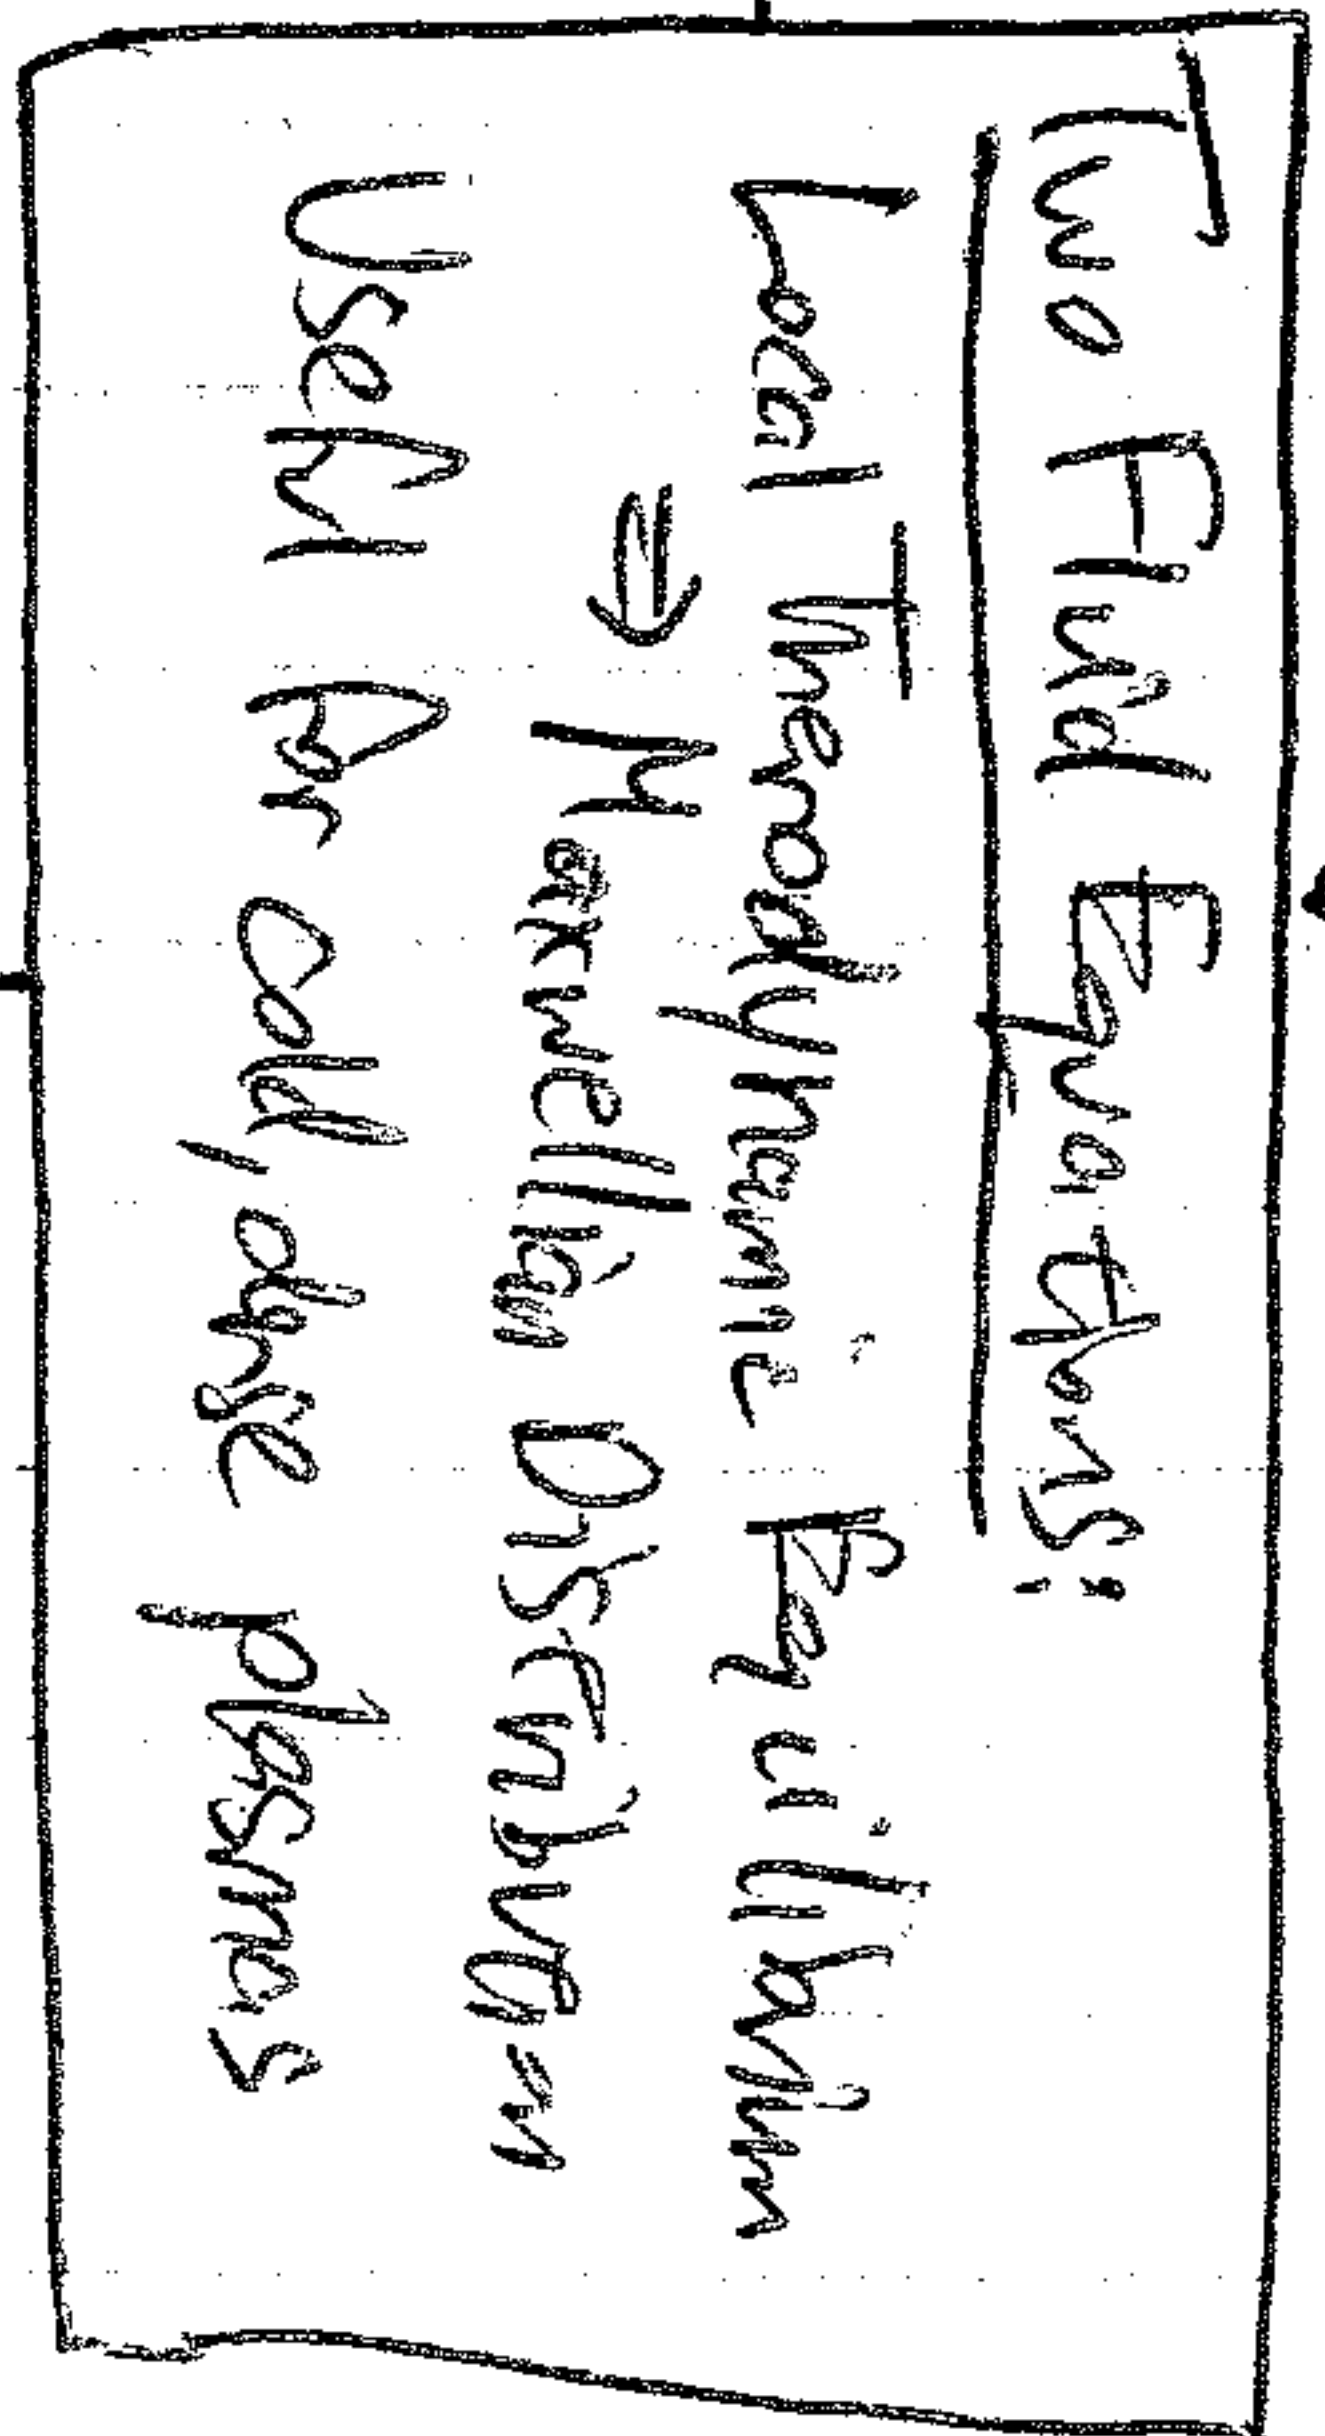 Two Fluid Equations:
Local Thermodynamic Equilibrium
⇒ Maxwellian Distribution
Useful for cold, dense plasmas